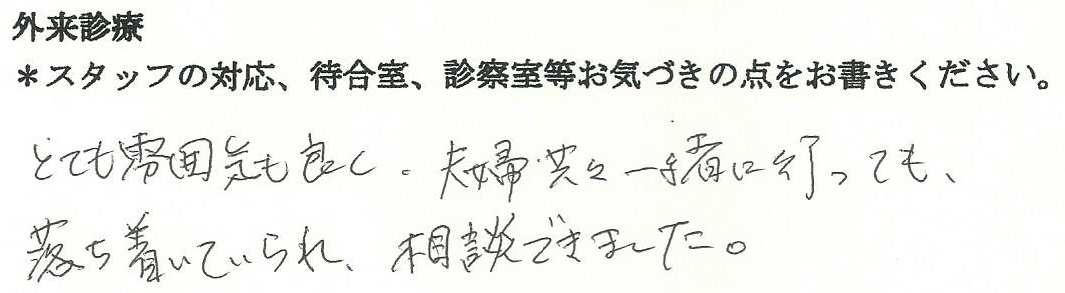 外来診療
＊スタッフの対応、待合室、診察室等お気づきの点をお書きください。
とても雰囲気も良く、夫婦共々一緒に行っても、
落ち着いていられ、相談できました。